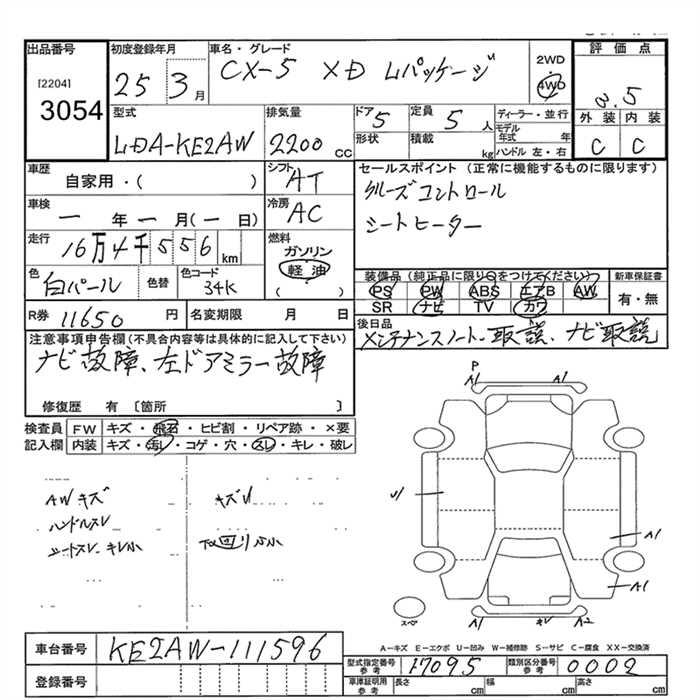 出品番号
[2204]
3054
初度登録年月
25 3月
車名・グレード
CX-5 XD Lパッケージ
2WD
4WD
評価点
3.5
外装 内装
C C
型式
LDA-KE2AW
排気量
2200 cc
ドア 5
形状
定員 5人
積載 kg
ディーラー・並行
モデル年式 年
ハンドル 左・右
車歴
自家用・( )
シフト AT
車検
一年一月(一日)
冷房 AC
走行
16万4千556km
燃料
ガソリン
軽油
( )
色
白パール
色替
色コード
34K
セールスポイント (正常に機能するものに限ります)
クルーズコントロール
シートヒーター
装備品(純正品に限り○をつけてください) 新車保証書
PS PW ABS エアB AW 有・無
SR ナビ TV カワ
R券 11650円
名変期限 月 日
後日品
メンテナンスノート、取説、ナビ取説
注意事項申告欄(不具合内容等は具体的に記入して下さい)
ナビ故障、左ドアミラー故障
修復歴 有 [箇所 ]
検査員記入欄
FW キズ・飛石・ヒビ割・リペア跡・×要
内装 キズ・汚レ・コゲ・穴・スレ・キレ・破レ
AWキズ
ハンドルスレ
シートスレ・キレ小
キズU
下回りサビ小
P
A1 A1
U1
A1
A1
A1 キレ A2
スペア
A-キズ E-エクボ U-凹み W-補修跡 S-サビ C-腐食 XX-交換済
車台番号
KE2AW-111596
登録番号
型式指定番号参考 17095
類別区分番号参考 0002
車庫証明用参考 長さ cm 幅 cm 高さ cm